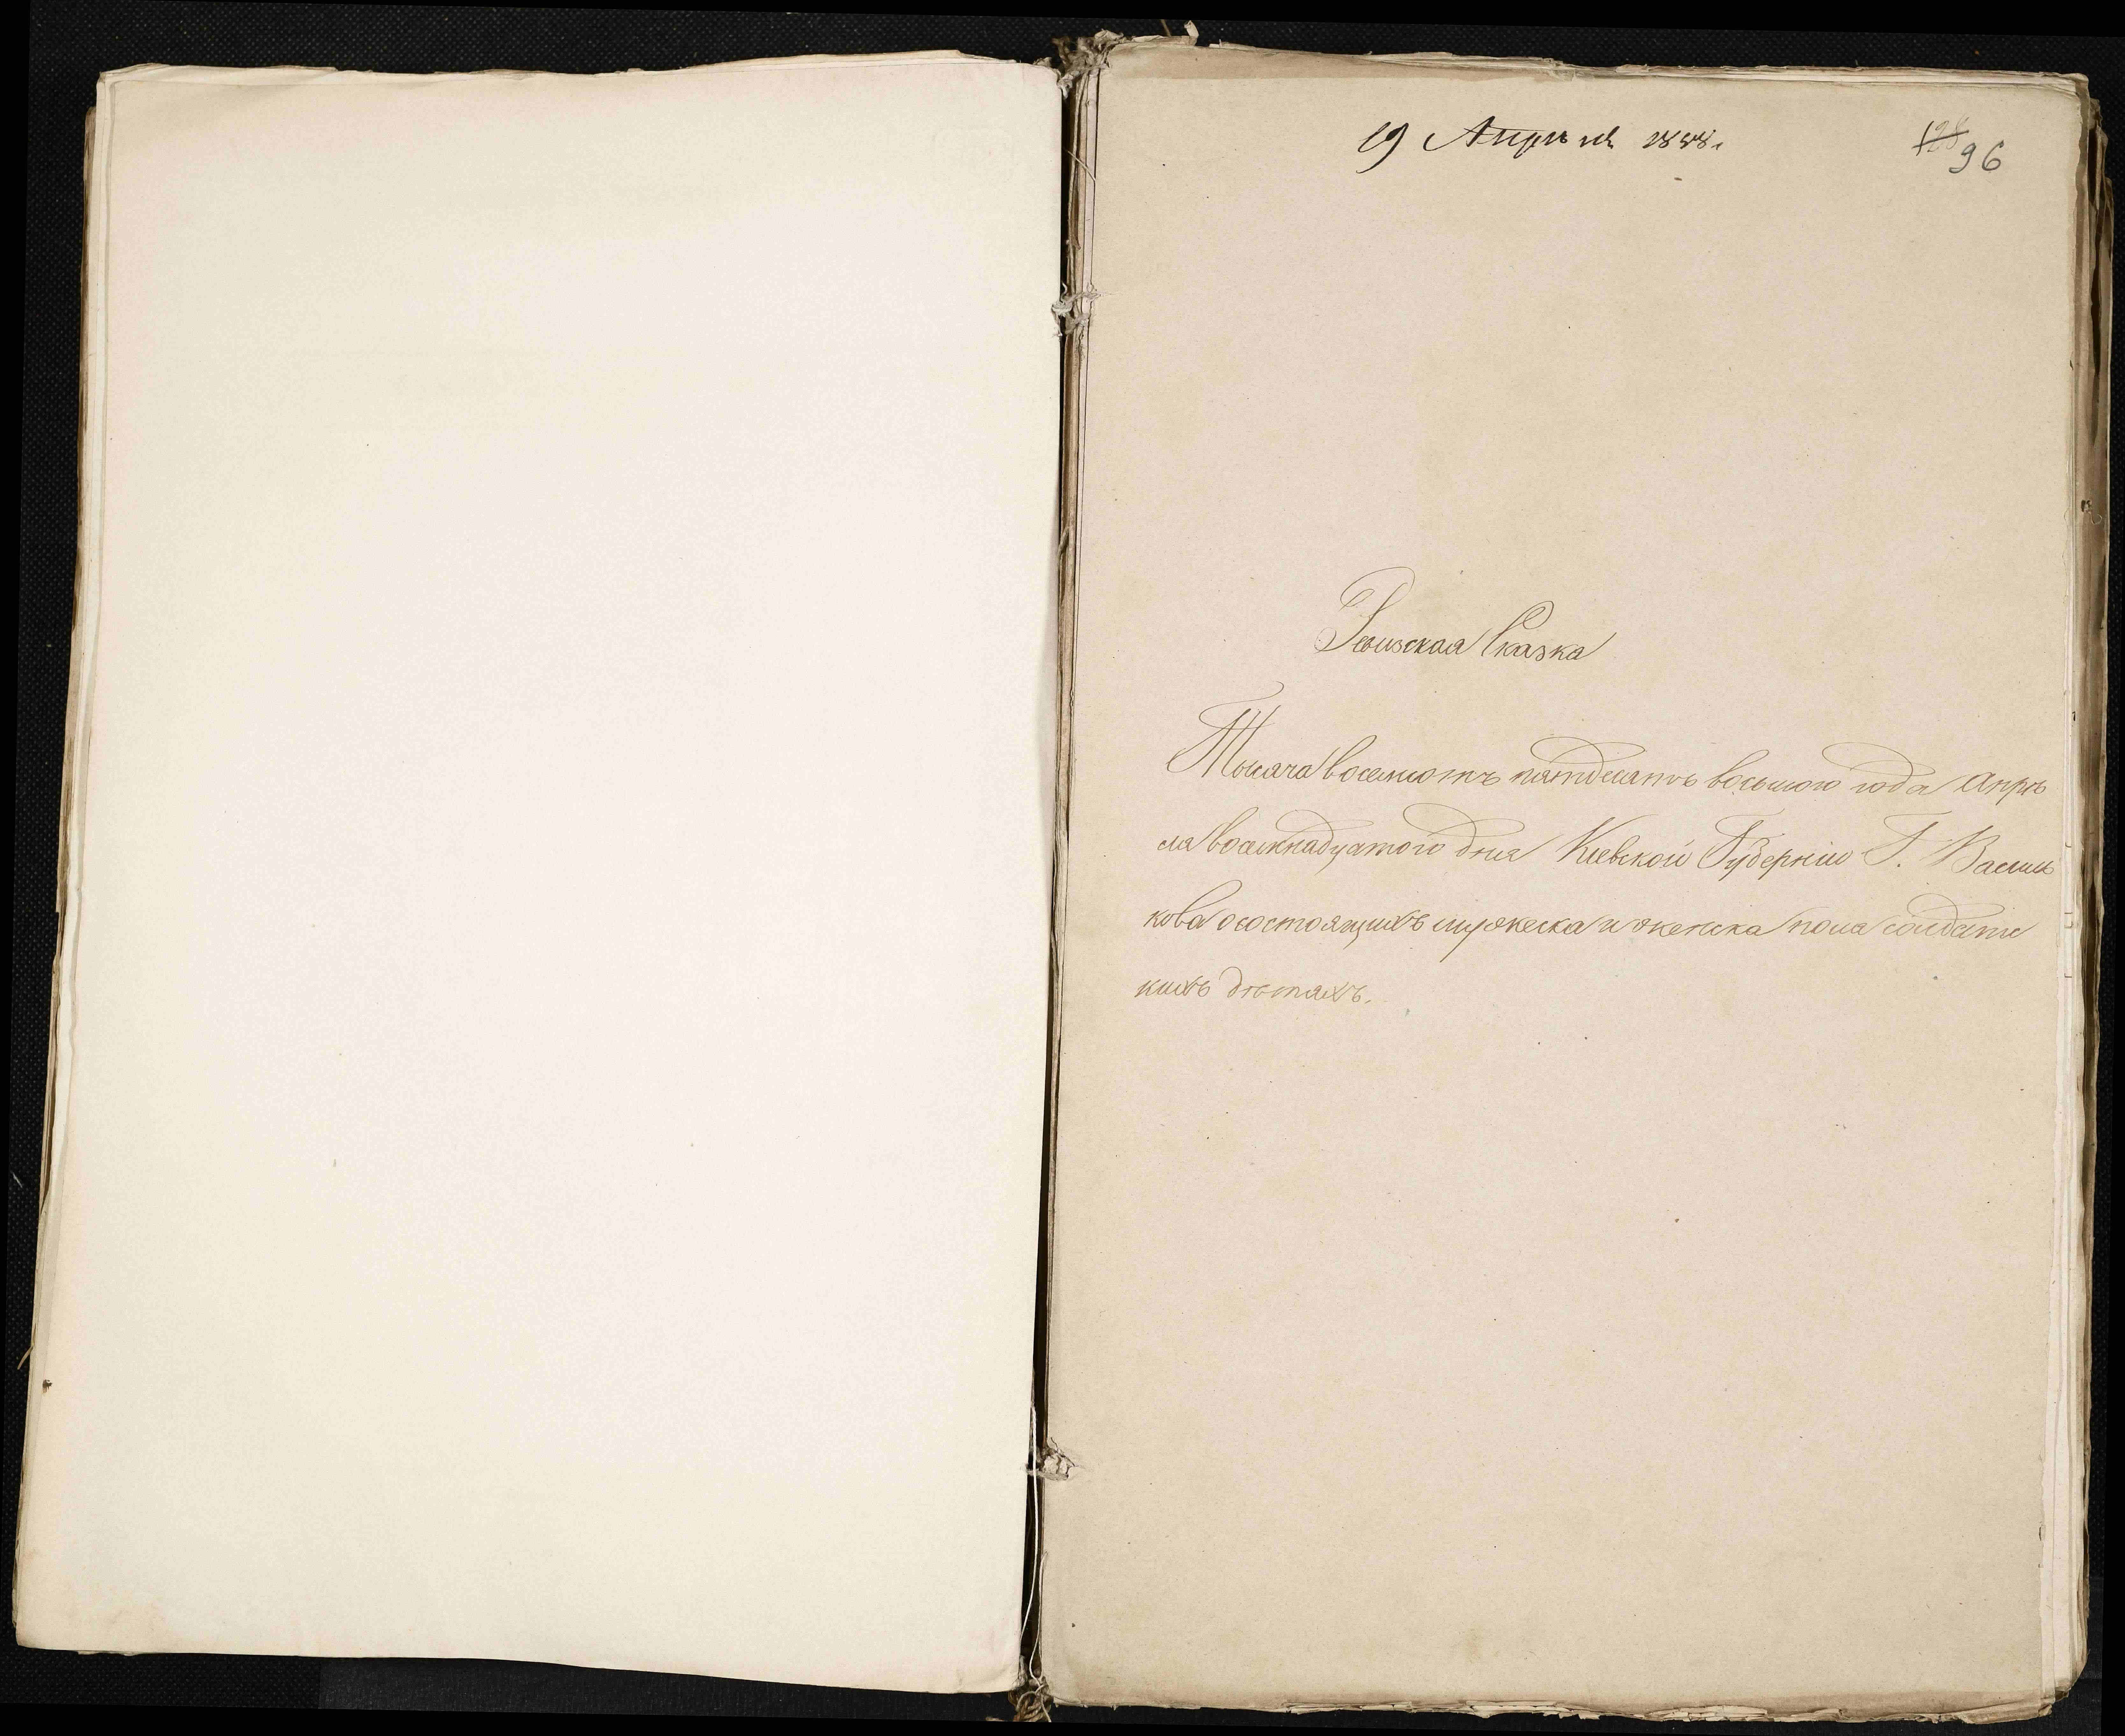 19 Апрѣля 1858.
128 96
Ревизская Сказка
Тысяча восемсотъ пятдесятъ восьмого года Апрѣ
ля восемнадцатого дня Кіевской Губерніи Г. Василь
кова осостоящихъ мужеска и женска пола солдатс
кихъ дѣтяхъ.